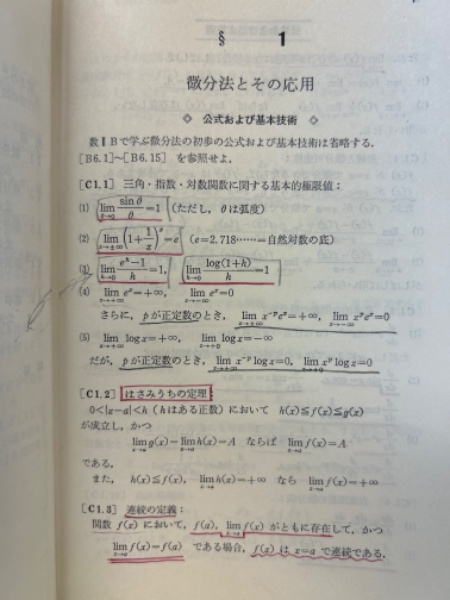 § 1
微分法とその応用
◇ 公式および基本技術 ◇
数ⅡBで学ぶ微分法の初歩の公式および基本技術は省略する.
[B6.1]~[B6.15] を参照せよ.
[C1.1] 三角・指数・対数関数に関する基本的極限値:
(1) lim_{θ→0} sin θ/θ = 1 (ただし, θは弧度)
(2) lim_{x→±∞} (1+1/x)^x = e (e=2.718……=自然対数の底)
(3) lim_{h→0} (e^h−1)/h = 1, lim_{h→0} log(1+h)/h = 1
(4) lim_{x→+∞} e^x = +∞, lim_{x→−∞} e^x = 0
さらに, pが正定数のとき, lim x^{−p}e^x = +∞, lim_{x→−∞} x^p e^x = 0
(5) lim_{x→+∞} log x = +∞, lim_{x→+0} log x = −∞
だが, pが正定数のとき, lim_{x→+∞} x^{−p} log x = 0, lim_{x→+0} x^p log x = 0
[C1.2] はさみうちの定理
0<|x−a|<h (hはある正数) において h(x)≦f(x)≦g(x)
が成立し, かつ
lim_{x→a} g(x) = lim_{x→a} h(x) = A ならば lim_{x→a} f(x) = A
である.
また, h(x)≦f(x), lim_{x→a} h(x) = +∞ なら lim_{x→a} f(x) = +∞
[C1.3] 連続の定義:
関数 f(x) において, f(a), lim_{x→a} f(x) がともに存在して, かつ
lim_{x→a} f(x) = f(a) である場合, f(x) は x=a で連続である.